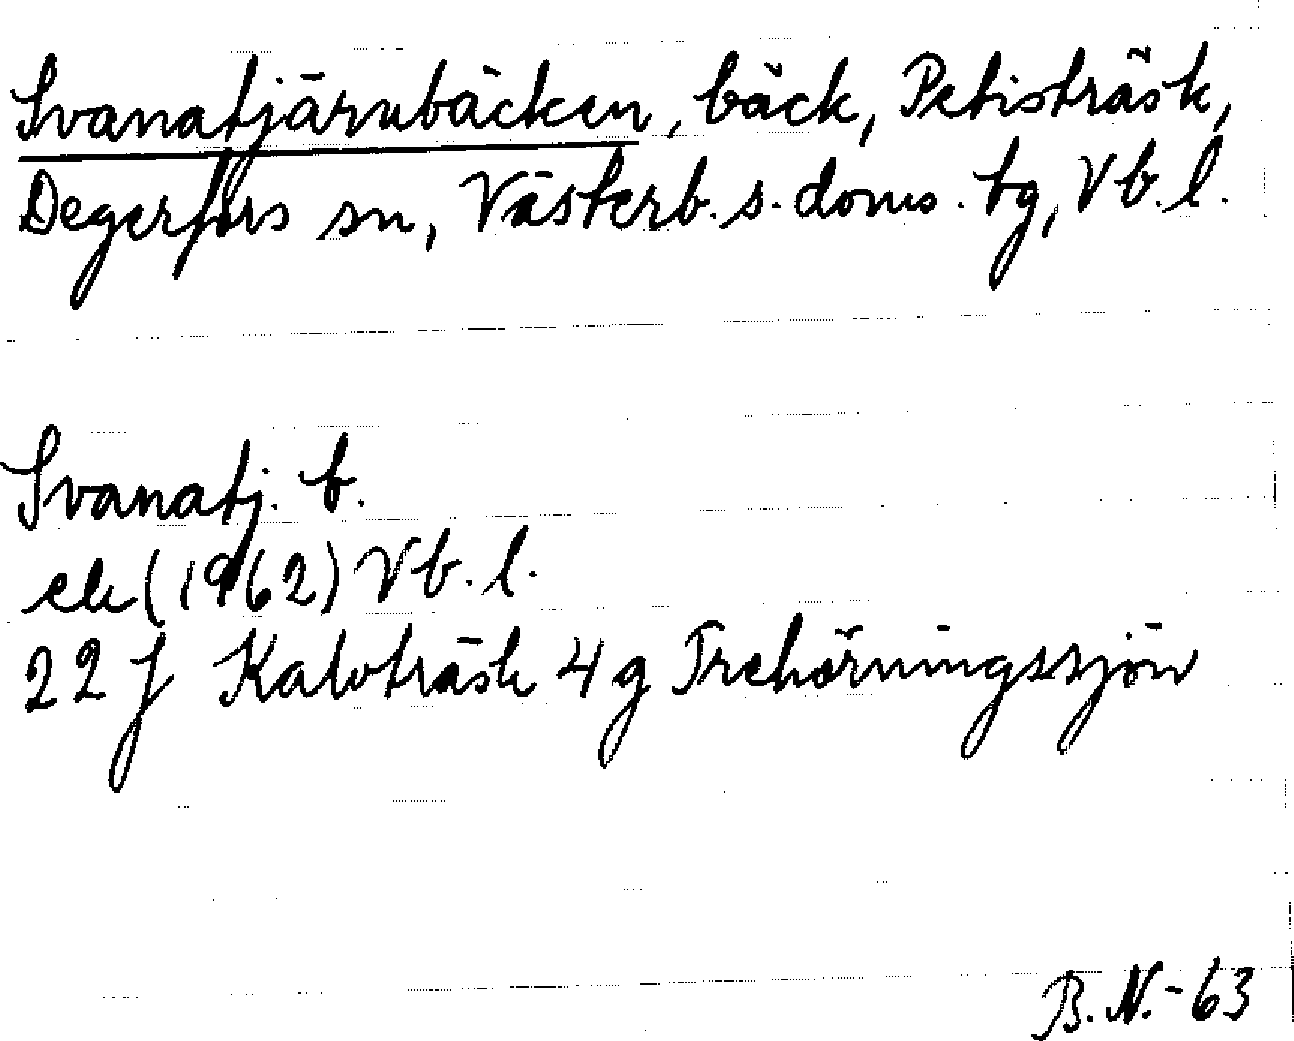 Svanatjärnbäcken, bäck, Petisträsk,
Degerfors sn, Västerb. s. doms. tg, Vb. l.
Svanatj. b.
ek (1962) Vb. l.
22 J Kalvträsk 4 g Trehörningssjön
B. N. - 63